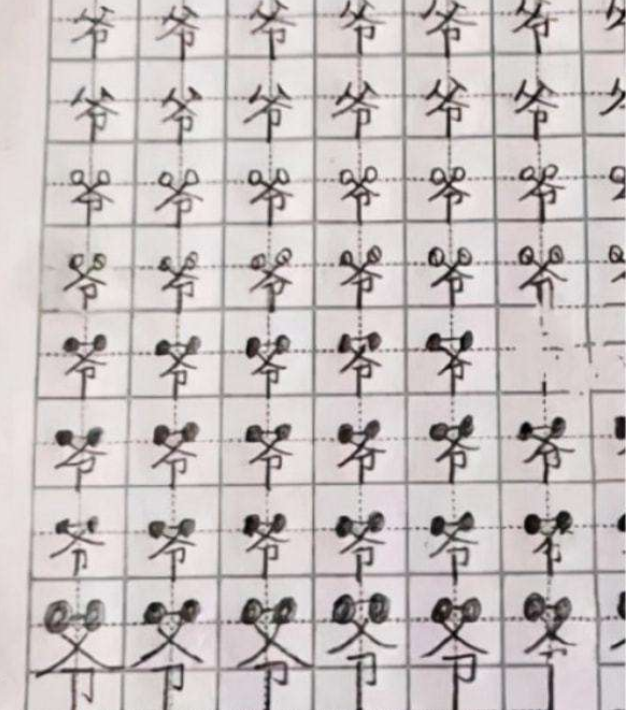 爷 爷 爷 爷 爷 爷
爷 爷 爷 爷 爷 爷
爷 爷 爷 爷 爷 爷
爷 爷 爷 爷 爷 爷
爷 爷 爷 爷 爷
爷 爷 爷 爷 爷 爷
爷 爷 爷 爷 爷 爷
爷 爷 爷 爷 爷 爷